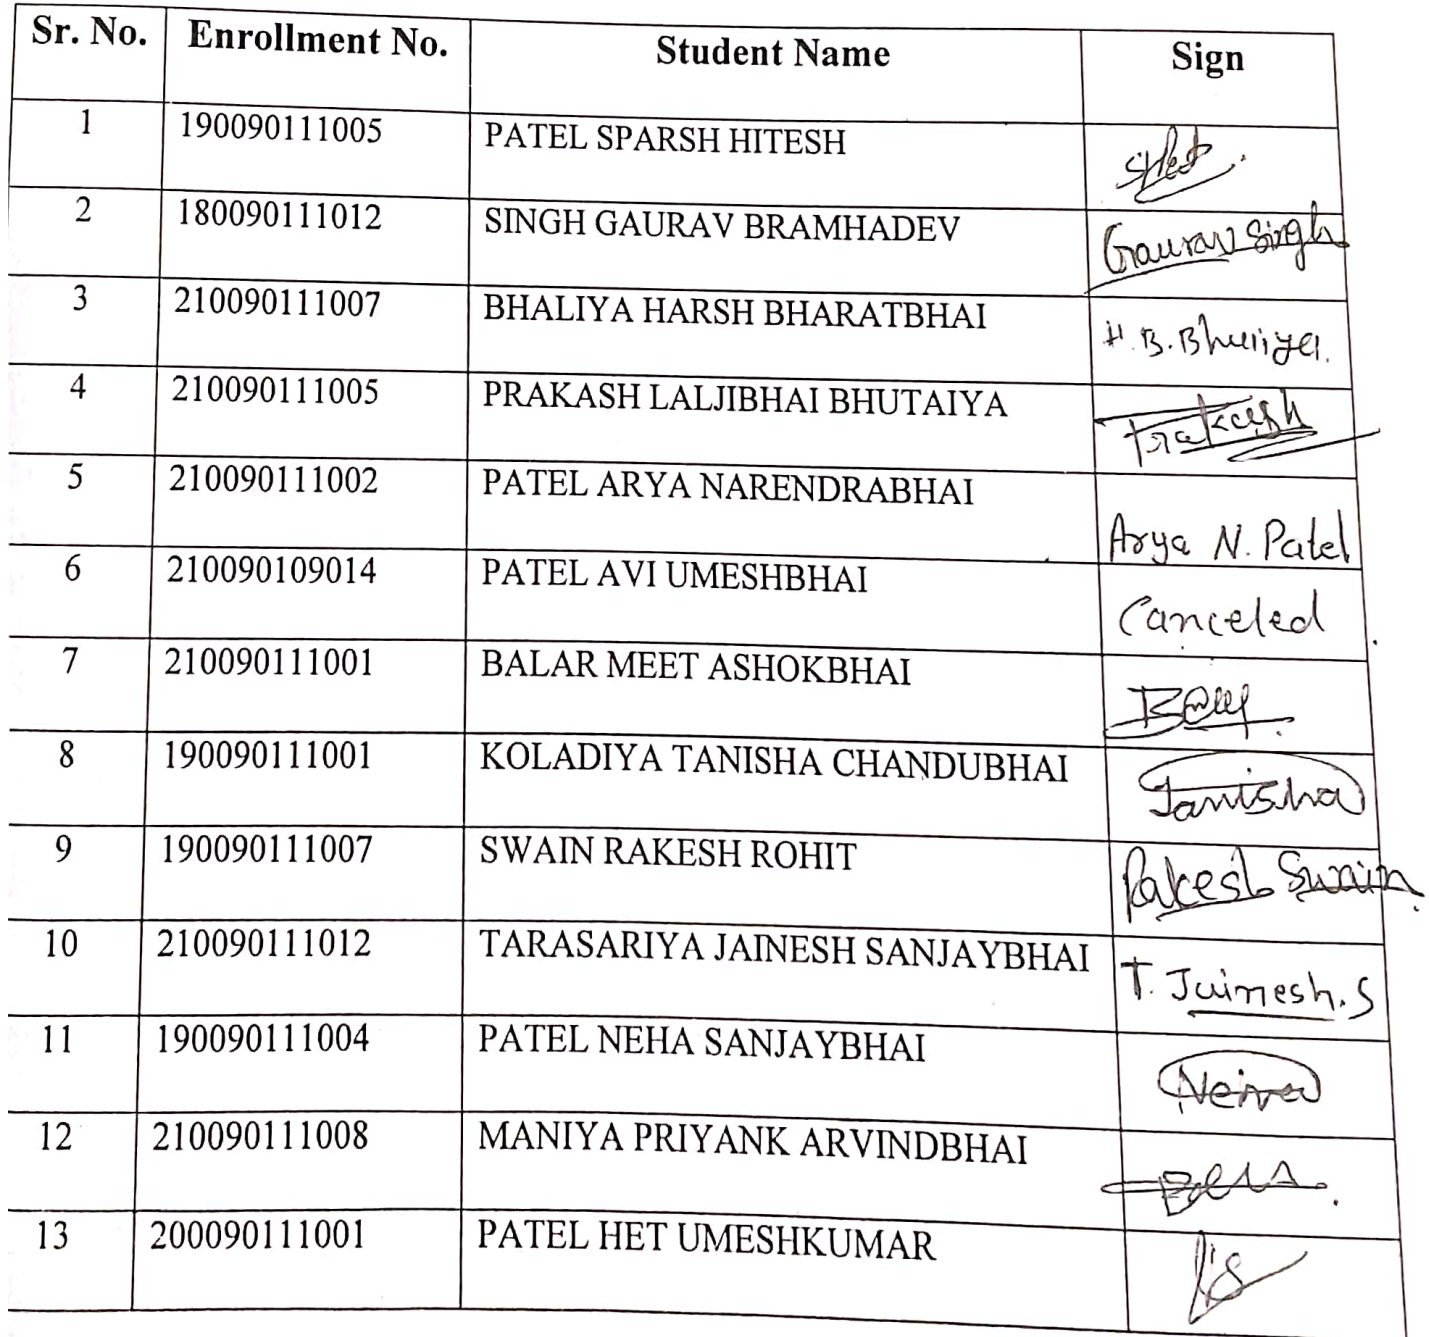 Sr. No. Enrollment No. Student Name Sign
1 190090111005 PATEL SPARSH HITESH
2 180090111012 SINGH GAURAV BRAMHADEV Gaurav Singh
3 210090111007 BHALIYA HARSH BHARATBHAI H. B. Bhuliya.
4 210090111005 PRAKASH LALJIBHAI BHUTAIYA Prakash
5 210090111002 PATEL ARYA NARENDRABHAI Arya N. Patel
6 210090109014 PATEL AVI UMESHBHAI Canceled
7 210090111001 BALAR MEET ASHOKBHAI
8 190090111001 KOLADIYA TANISHA CHANDUBHAI Tanisha
9 190090111007 SWAIN RAKESH ROHIT Rakesh Swain
10 210090111012 TARASARIYA JAINESH SANJAYBHAI T. Jainesh. S
11 190090111004 PATEL NEHA SANJAYBHAI Neha
12 210090111008 MANIYA PRIYANK ARVINDBHAI
13 200090111001 PATEL HET UMESHKUMAR